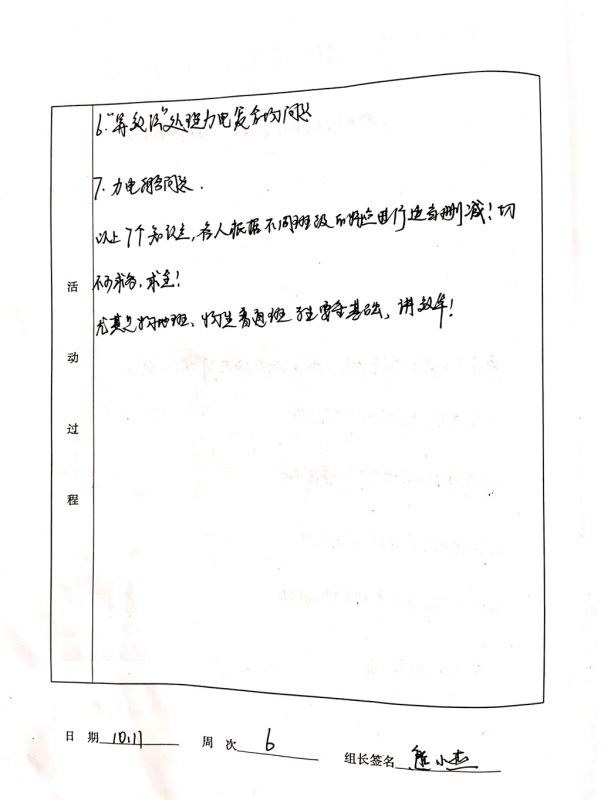 6."等效法"处理力电复合场问题
7.力电综合问题.
以上7个知识点,各人根据不同班级的情况进行适当删减!切
不可求多,求全!
尤其是物地班、物生普通班 注重夯基础,讲效率!
活动过程
日期 10.11 周次 6
组长签名 熊小杰